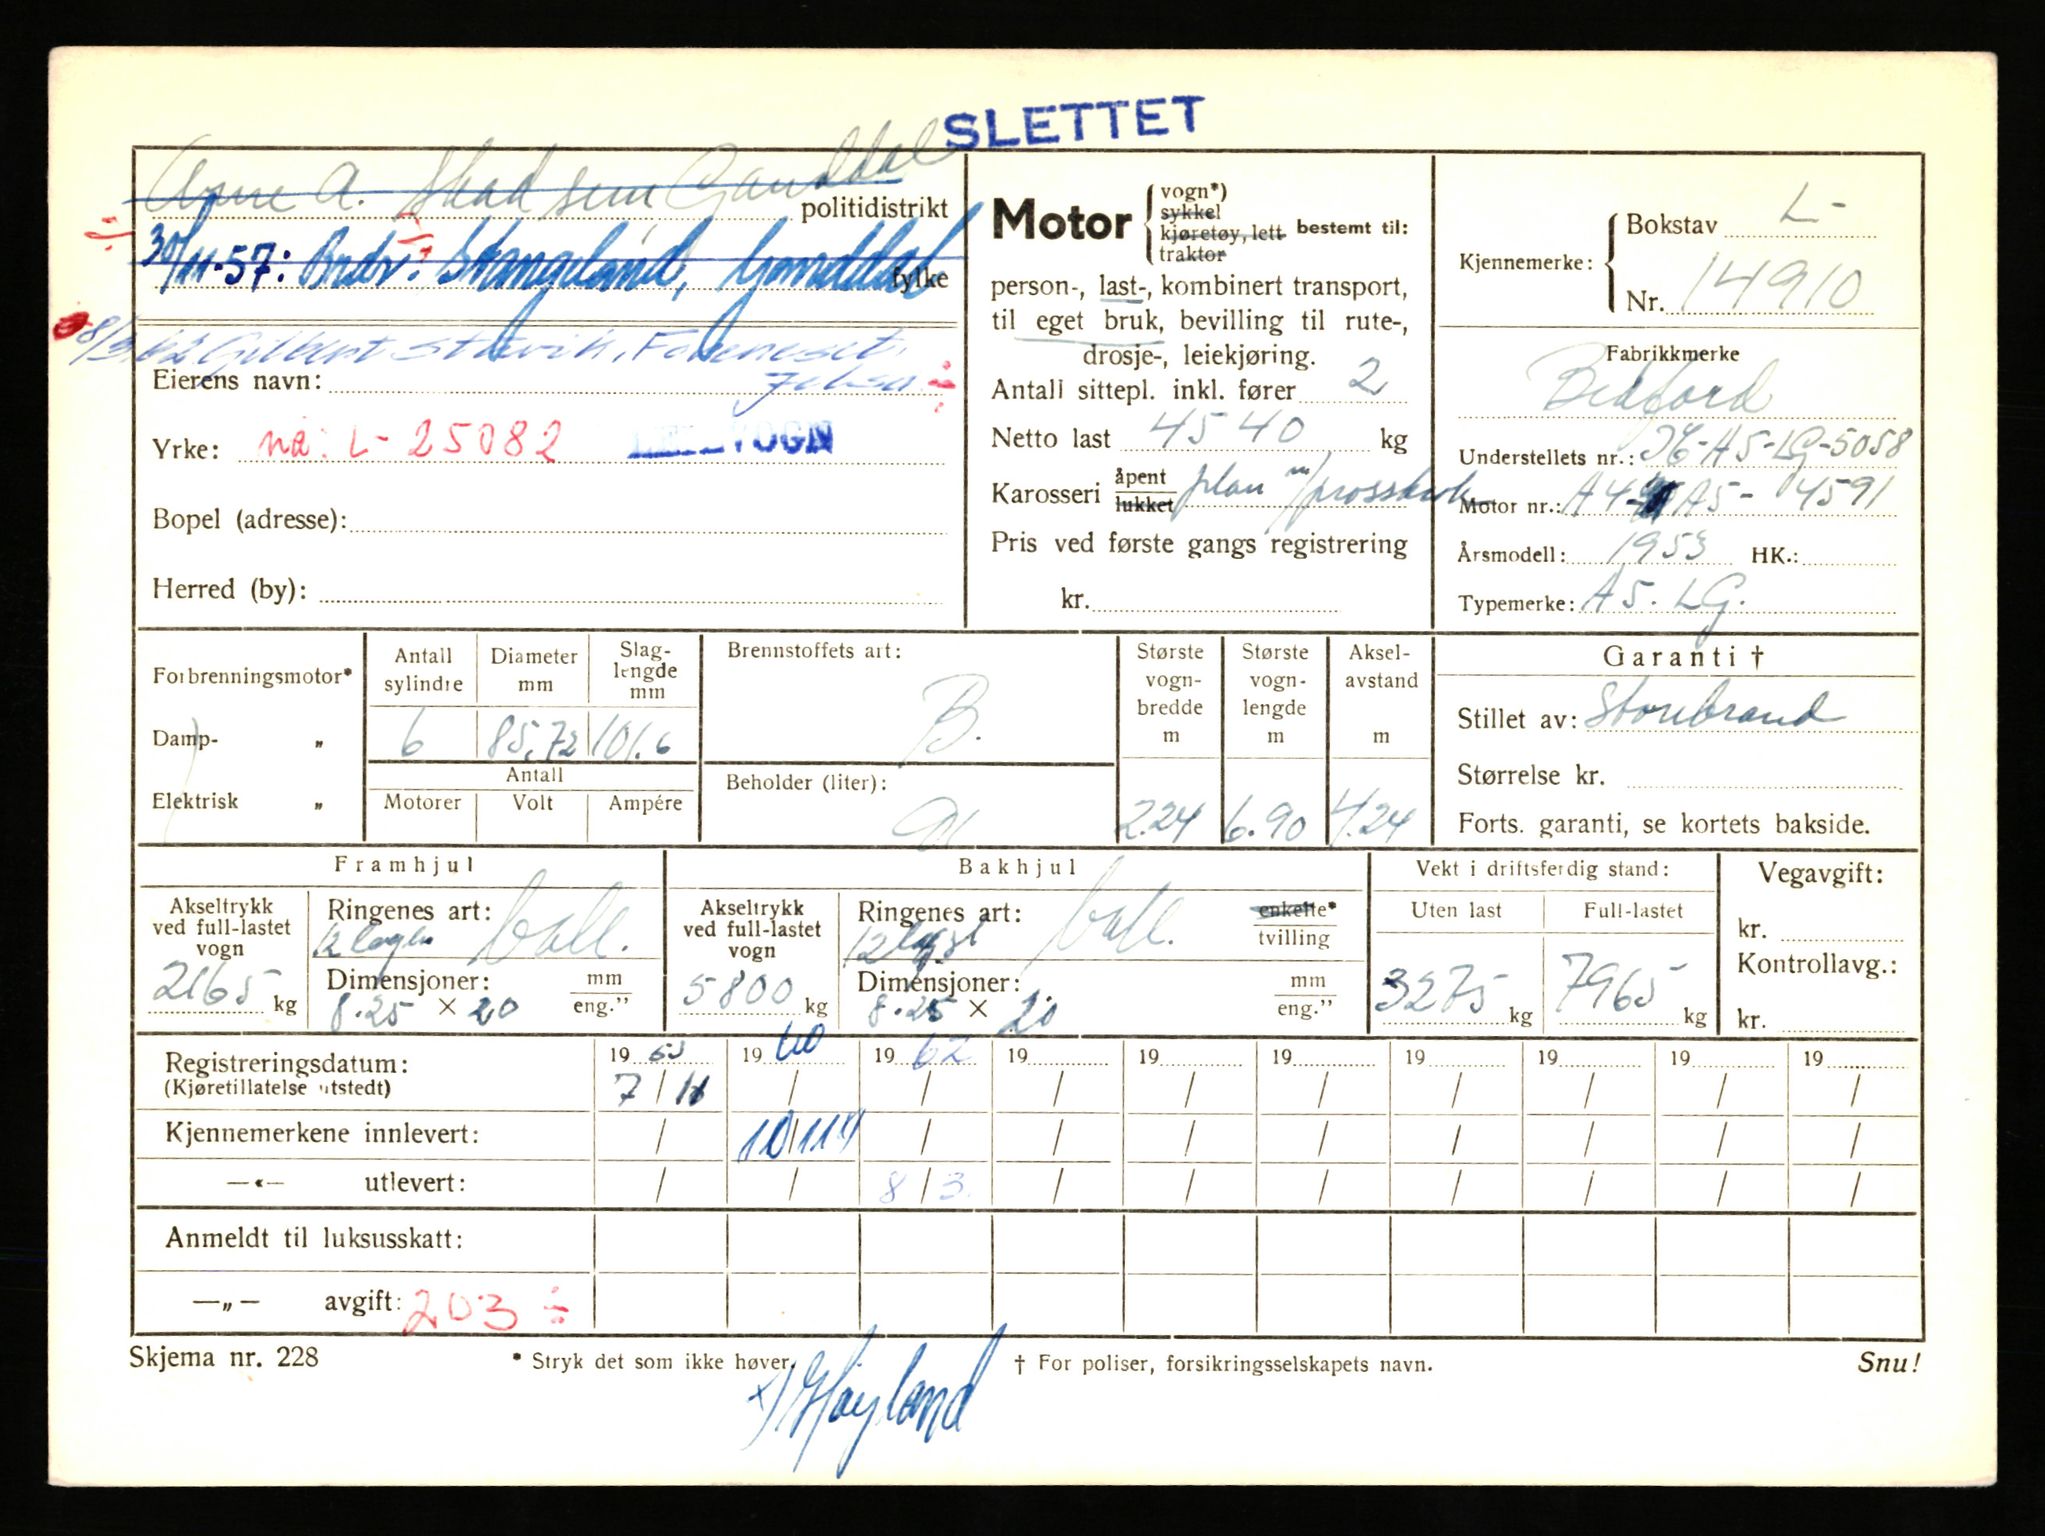 SLETTET
Arne A. Skadsem Ganddal
politidistrikt
30/11-57: Brdr. Stangeland, Ganddal
fylke
8/3.62 Gilbert Stokvik, Foreneset,
Eierens navn: Jelsa
Yrke: nå: L-25082 VOGN
Bopel (adresse):
Herred (by):
Motor vogn*) sykkel kjøretøy, lett traktor bestemt til:
person-, last-, kombinert transport,
til eget bruk, bevilling til rute-,
drosje-, leiekjøring.
Antall sittepl. inkl. fører 2
Netto last 4540 kg
Karosseri åpent lukket plan m/
Pris ved første gangs registrering
kr.
Kjennemerke: Bokstav L-
Nr. 14910
Fabrikkmerke
Bedford
Understellets nr.: A5-LG-5058
Motor nr.: A4- A5- 4591
Årsmodell: 1953 HK.:
Typemerke: A5. LG.
Forbrenningsmotor*
Damp- „
Elektrisk „
Antall sylindre 6
Diameter mm 85,72
Slaglengde mm 101.6
Antall
Motorer Volt Ampére
Brennstoffets art:
B.
Beholder (liter):
Største vognbredde m 2.24
Største vognlengde m 6.90
Akselavstand m 4.24
Garanti †
Stillet av: Storebrand
Størrelse kr.
Forts. garanti, se kortets bakside.
Framhjul
Akseltrykk ved full-lastet vogn 2165 kg
Ringenes art: 12 lagen ball.
Dimensjoner: 8.25 × 20 mm eng.”
Bakhjul
Akseltrykk ved full-lastet vogn 5800 kg
Ringenes art: ball. enkelte* tvilling
Dimensjoner: 8.25 × 20 mm eng.”
Vekt i driftsferdig stand:
Uten last 3275 kg
Full-lastet 7965 kg
Vegavgift:
kr.
Kontrollavg.:
kr.
Registreringsdatum: 19 53 19 60 19 62 19 19 19 19 19 19 19
(Kjøretillatelse utstedt) 7/11 / / / / / / / / /
Kjennemerkene innlevert: / 10/11 / / / / / / / /
—«— utlevert: / / 8/3 / / / / / / /
Anmeldt til luksusskatt:
—„— avgift: 203 ÷
Skjema nr. 228
* Stryk det som ikke høver.
† For poliser, forsikringsselskapets navn.
Snu!
x) Høyland